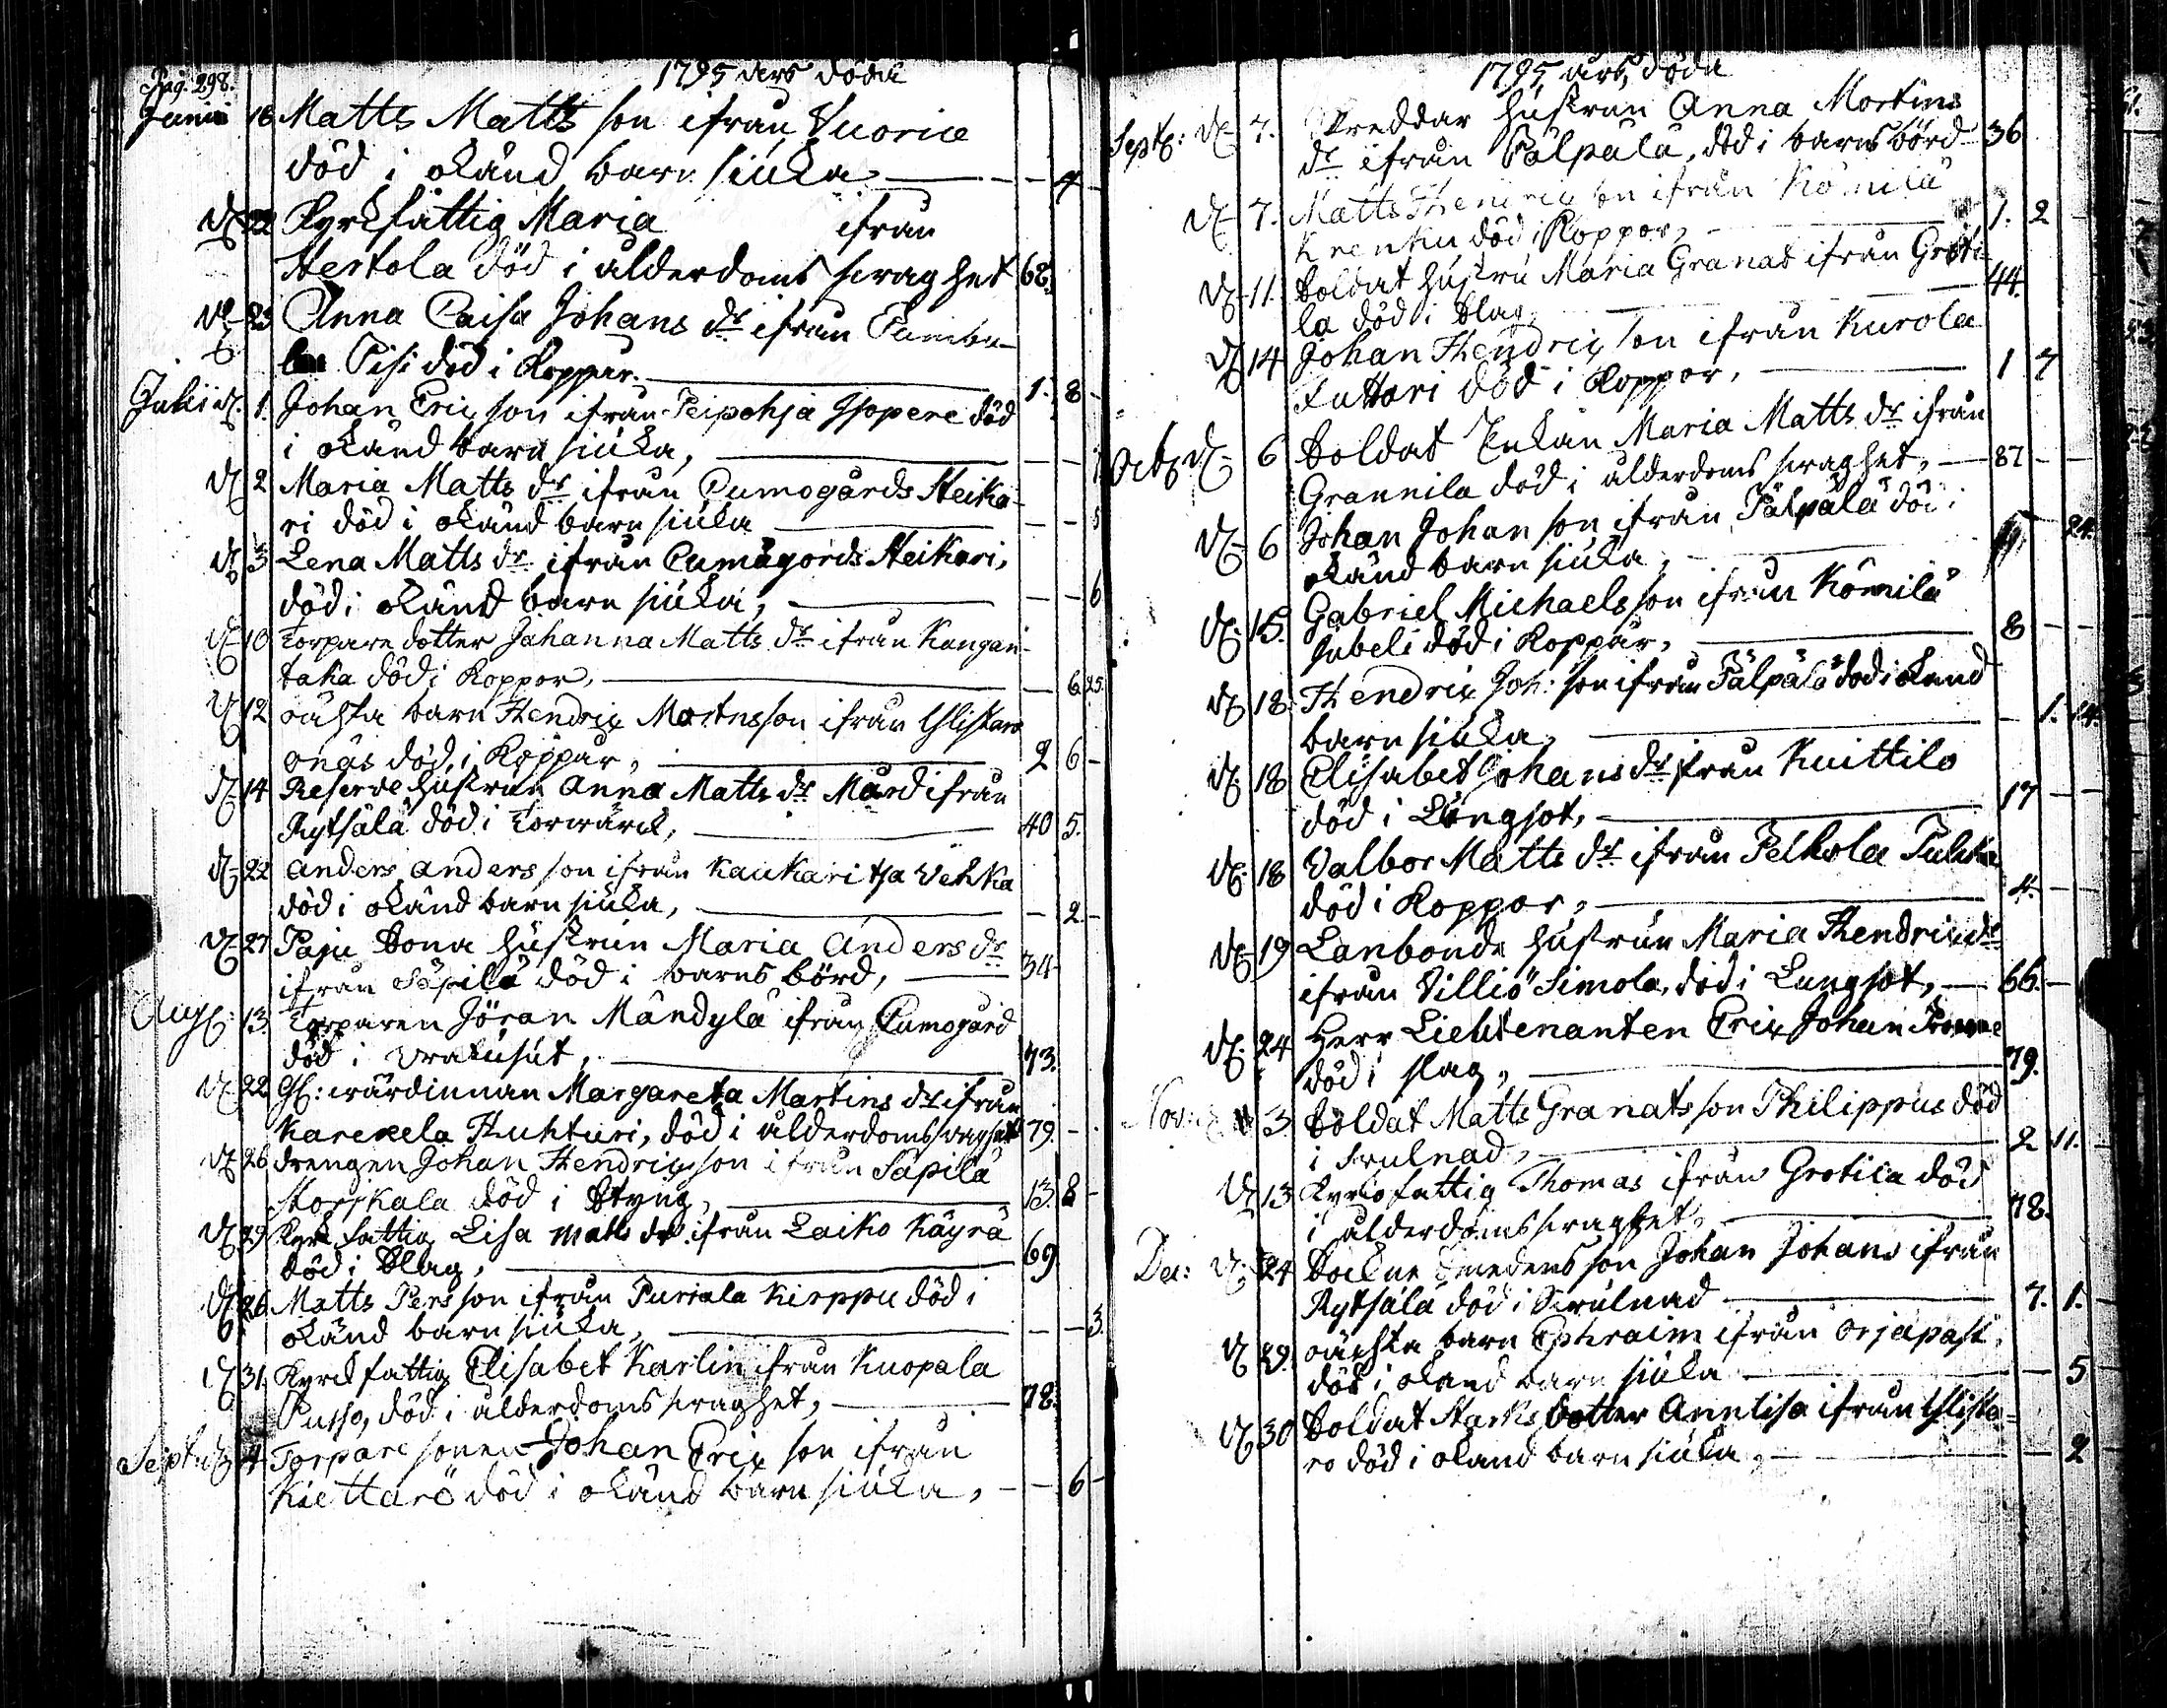 Pag. 298.
1795 års döda
Junii 18 Matts Matts son ifrån Vuorice
död i okänd barn siuka 4
D. 22 Kyrkfattig Maria ifrån
Hertola död i ålderdoms svaghet 68.
D. 23 Anna Caisa Johans dr ifrån
Pisi död i Koppor. 1. 8
Julii D. 1. Johan Erix son ifrån Peipohja Isopere död
i okänd barn siuka,
D. 2 Maria Matts dr ifrån Cumogårds Heika-
ri död i okänd barn siuka 5
D. 3 Lena Matts dr ifrån Cumogårds Heikari,
död i okänd barn siuka, 6
D. 10 Torpare dotter Johanna Matts dr ifrån Kangan-
taka död i Koppor, 6 25.
D. 12 oächta barn Hendrix Mortnsson ifrån Ylistaro
onäs död i Koppor, 2 6
D. 14 Reserve hustrun Anna Matts dr Mård ifrån
Rytsälä död i Torwärck, 40 5.
D. 22 Anders Anders son ifrån Kaukaritsa Vehka
död i okänd barn siuka, 2.
D. 27 Paju Bona hustrun Maria Anders dr
ifrån Säpilä död i barns börd, 34
Aug: 13 Torparen Jöran Mändylä ifrån Cumogård
död i 73.
D. 22 Gl: wärdinnan Margareta Martins dr ifrån
Karekela Huhturi, död i ålderdoms svaghet 79.
D. 26 drengen Johan Hendrix son ifrån Säpilä
Storskala död i Styng, 13. 8
D. 29 Kyrkfattig Lisa Matts dr ifrån Laiko Käyrä
död i Slag, 69
D. 26 Matts Pers son ifrån Puriala Kirppu död i
okänd barn siuka, 3.
D. 31. Kyrkfattig Elisabet Karlin ifrån Kuopala
Pusso, död i ålderdoms svaghet, 78.
Sept: D. 4 Torpare sonen Johan Erix son ifrån
Kiettarö död i okänd barn siuka, 6
1795 års döda
Sept: D. 7. Skreddar hustrun Anna Mortins
dr ifrån Pälpälä, död i barns börd 36
D. 7. Matts Hendrix son ifrån Kömilä
Krenku död i Koppor, 1. 2
D. 11. Soldat hustru Maria Granat ifrån Groti-
la död i Slag, 44.
D. 14 Johan Hendrix son ifrån Kurola
Futtari död i Koppor, 1 7
Octob: D. 6 Soldat Enkan Maria Matts dr ifrån
Grannila död i ålderdoms svaghet, 87
D. 6 Johan Johan son ifrån Pälpälä död i
okänd barn siuka, 24.
D. 15. Gabriel Michaels son ifrån Kömilä
Jubeli död i Koppor, 8
D. 18. Hendrix Joh: son ifrån Pälpälä död i okänd
barn siuka, 1. 14.
D. 18 Elisabet Johans dr ifrån Kuittilo
död i Lungsot, 17
D. 18 Valbor Matts dr ifrån Pelhola
död i Koppor, 4.
D. 19 Lanbonde hustrun Maria Hendrix dr
ifrån Villiö Simola, död i Lungsot, 66.
D. 24 Herr Lieutenanten Eric Johan
död i slag, 79.
Nov: D. 3 Soldat Matts Granats son Philippus död
i svulnad, 2 11.
D. 13 Kyrkofattig Thomas ifrån Grotila död
i ålderdoms svaghet, 78.
Dec: D. 24 Sockne Smedens son Johan Johans ifrån
Rytsälä död i Svulnad 7. 1.
D. 29. oächta barn Ephraim ifrån Orjapast.
död i okänd barn siuka 5
D. 30 Soldat Starks Dotter Annlisa ifrån Ylista-
ro död i okänd barn siuka, 2